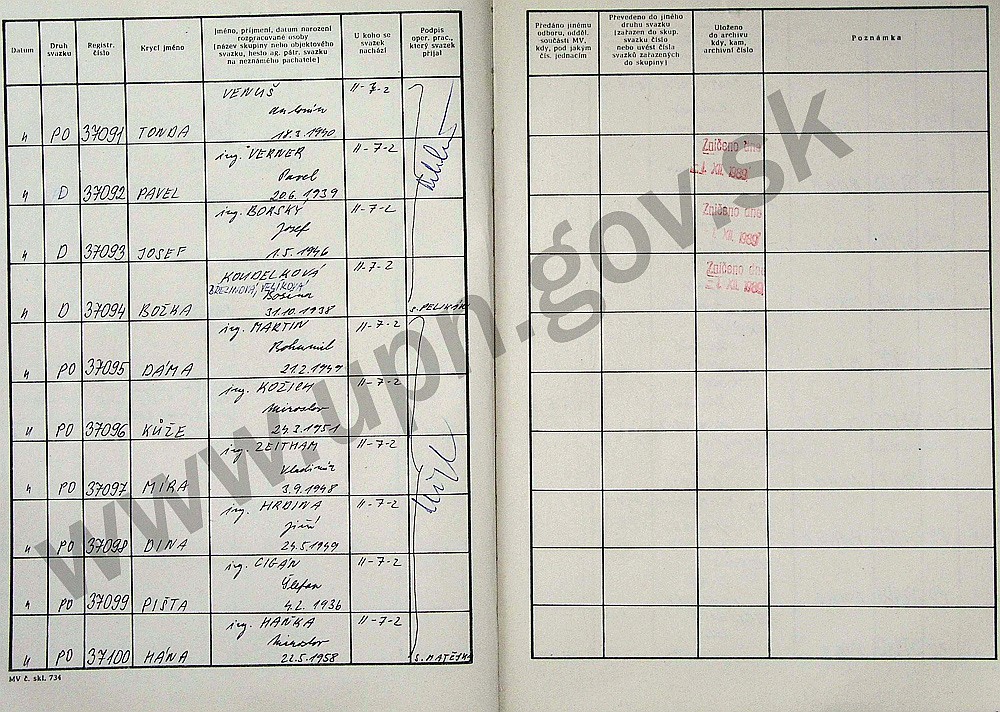 Datum
Druh svazku
Registr. číslo
Krycí jméno
Jméno, příjmení, datum narození
rozpracované osoby
[název skupiny nebo objektového
svazku, heslo ag. pátr. svazku
na neznámého pachatele]
U koho se
svazek
nachází
Podpis
oper. prac.,
který svazek
přijal
Předáno jinému
odboru, odděl.
součásti MV,
kdy, pod jakým
čís. jednacím
Převedeno do jiného
druhu svazku
[zařazen do skup.
svazku číslo
nebo uvést čísla
svazků zařazených
do skupiny]
Uloženo
do archivu
kdy, kam,
archivní číslo
Poznámka
VENUŠ II-7-2
Antonín
" PO 37091 TONDA 18.3.1940
ing. VERNER II-7-2
Pavel
" D 37092 PAVEL 20.6.1939
Zničeno dne
1. XII. 1989
ing. BORSKÝ II-7-2
Josef
" D 37093 JOSEF 1.5.1946
Zničeno dne
1. XII. 1989
KOUDELKOVÁ II-7-2
BŘEZINOVÁ,
Božena
" D 37094 BOŽKA 31.10.1938 S. PELIKÁN
Zničeno dne
1. XII. 1989
ing. MARTIN II-7-2
Bohumil
" PO 37095 DÁMA 21.2.1949
ing. KOŽICH II-7-2
Miroslav
" PO 37096 KŮŽE 24.3.1951
ing. ZEITHAM II-7-2
Vladimír
" PO 37097 MÍRA 3.9.1948
ing. HRDINA II-7-2
Jiří
" PO 37098 DINA 24.5.1949
ing. CIGÁN II-7-2
Štefan
" PO 37099 PIŠTA 4.2.1936
ing. HAŇKA II-7-2
Miroslav
" PO 37100 HÁNA 22.5.1958 S. MATĚJKA
MV č. skl. 734
www.upn.gov.sk